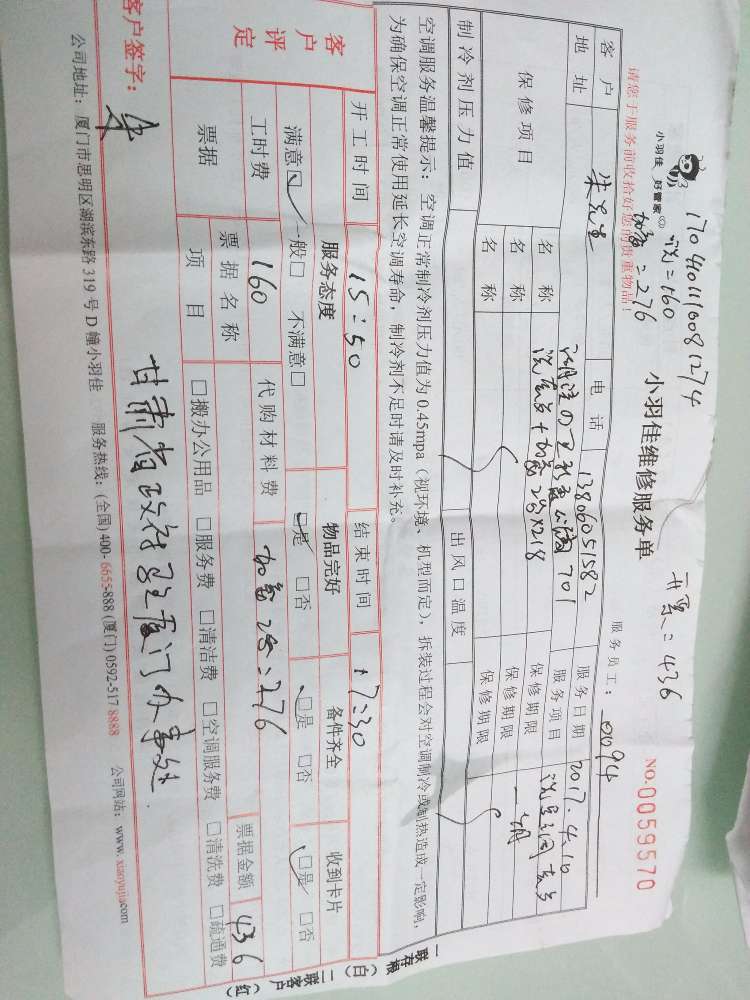 1704101160081274
洗=160
加氟=276
开票=436
小羽佳
好管家
小羽佳维修服务单
NO.00059570
请您于服务前收拾好您的贵重物品!
服务员工:
客户 朱先生 电话 13806051582 服务日期 2017.4.10
地址 701 服务项目
保修项目 名称 保修期限
名称 保修期限
名称 保修期限
制冷剂压力值 出风口温度
空调服务温馨提示:空调正常制冷剂压力值为0.45mpa(视环境、机型而定),拆装过程会对空调制冷或制热造成一定影响,
为确保空调正常使用延长空调寿命,制冷剂不足时请及时补充。
开工时间 15:50 结束时间 17:30
客户评定 服务态度 物品完好 备件齐全 收到卡片
满意□ 一般□ 不满意□ □是 □否 □是 □否 □是 □否
工时费 160 代购材料费 =276
票据 票据名称 票据金额 436
项目 □搬办公用品 □服务费 □清洁费 □空调服务费 □清洗费 □疏通费
客户签字: 朱
甘肃省政府驻厦门办事处
公司地址:厦门市思明区湖滨东路319号D幢小羽佳 服务热线:(全国)400-6655-888 (厦门)0592-517 8888 公司网站:www.xiaoyujia.com
一联存根(白) 二联客户(红)